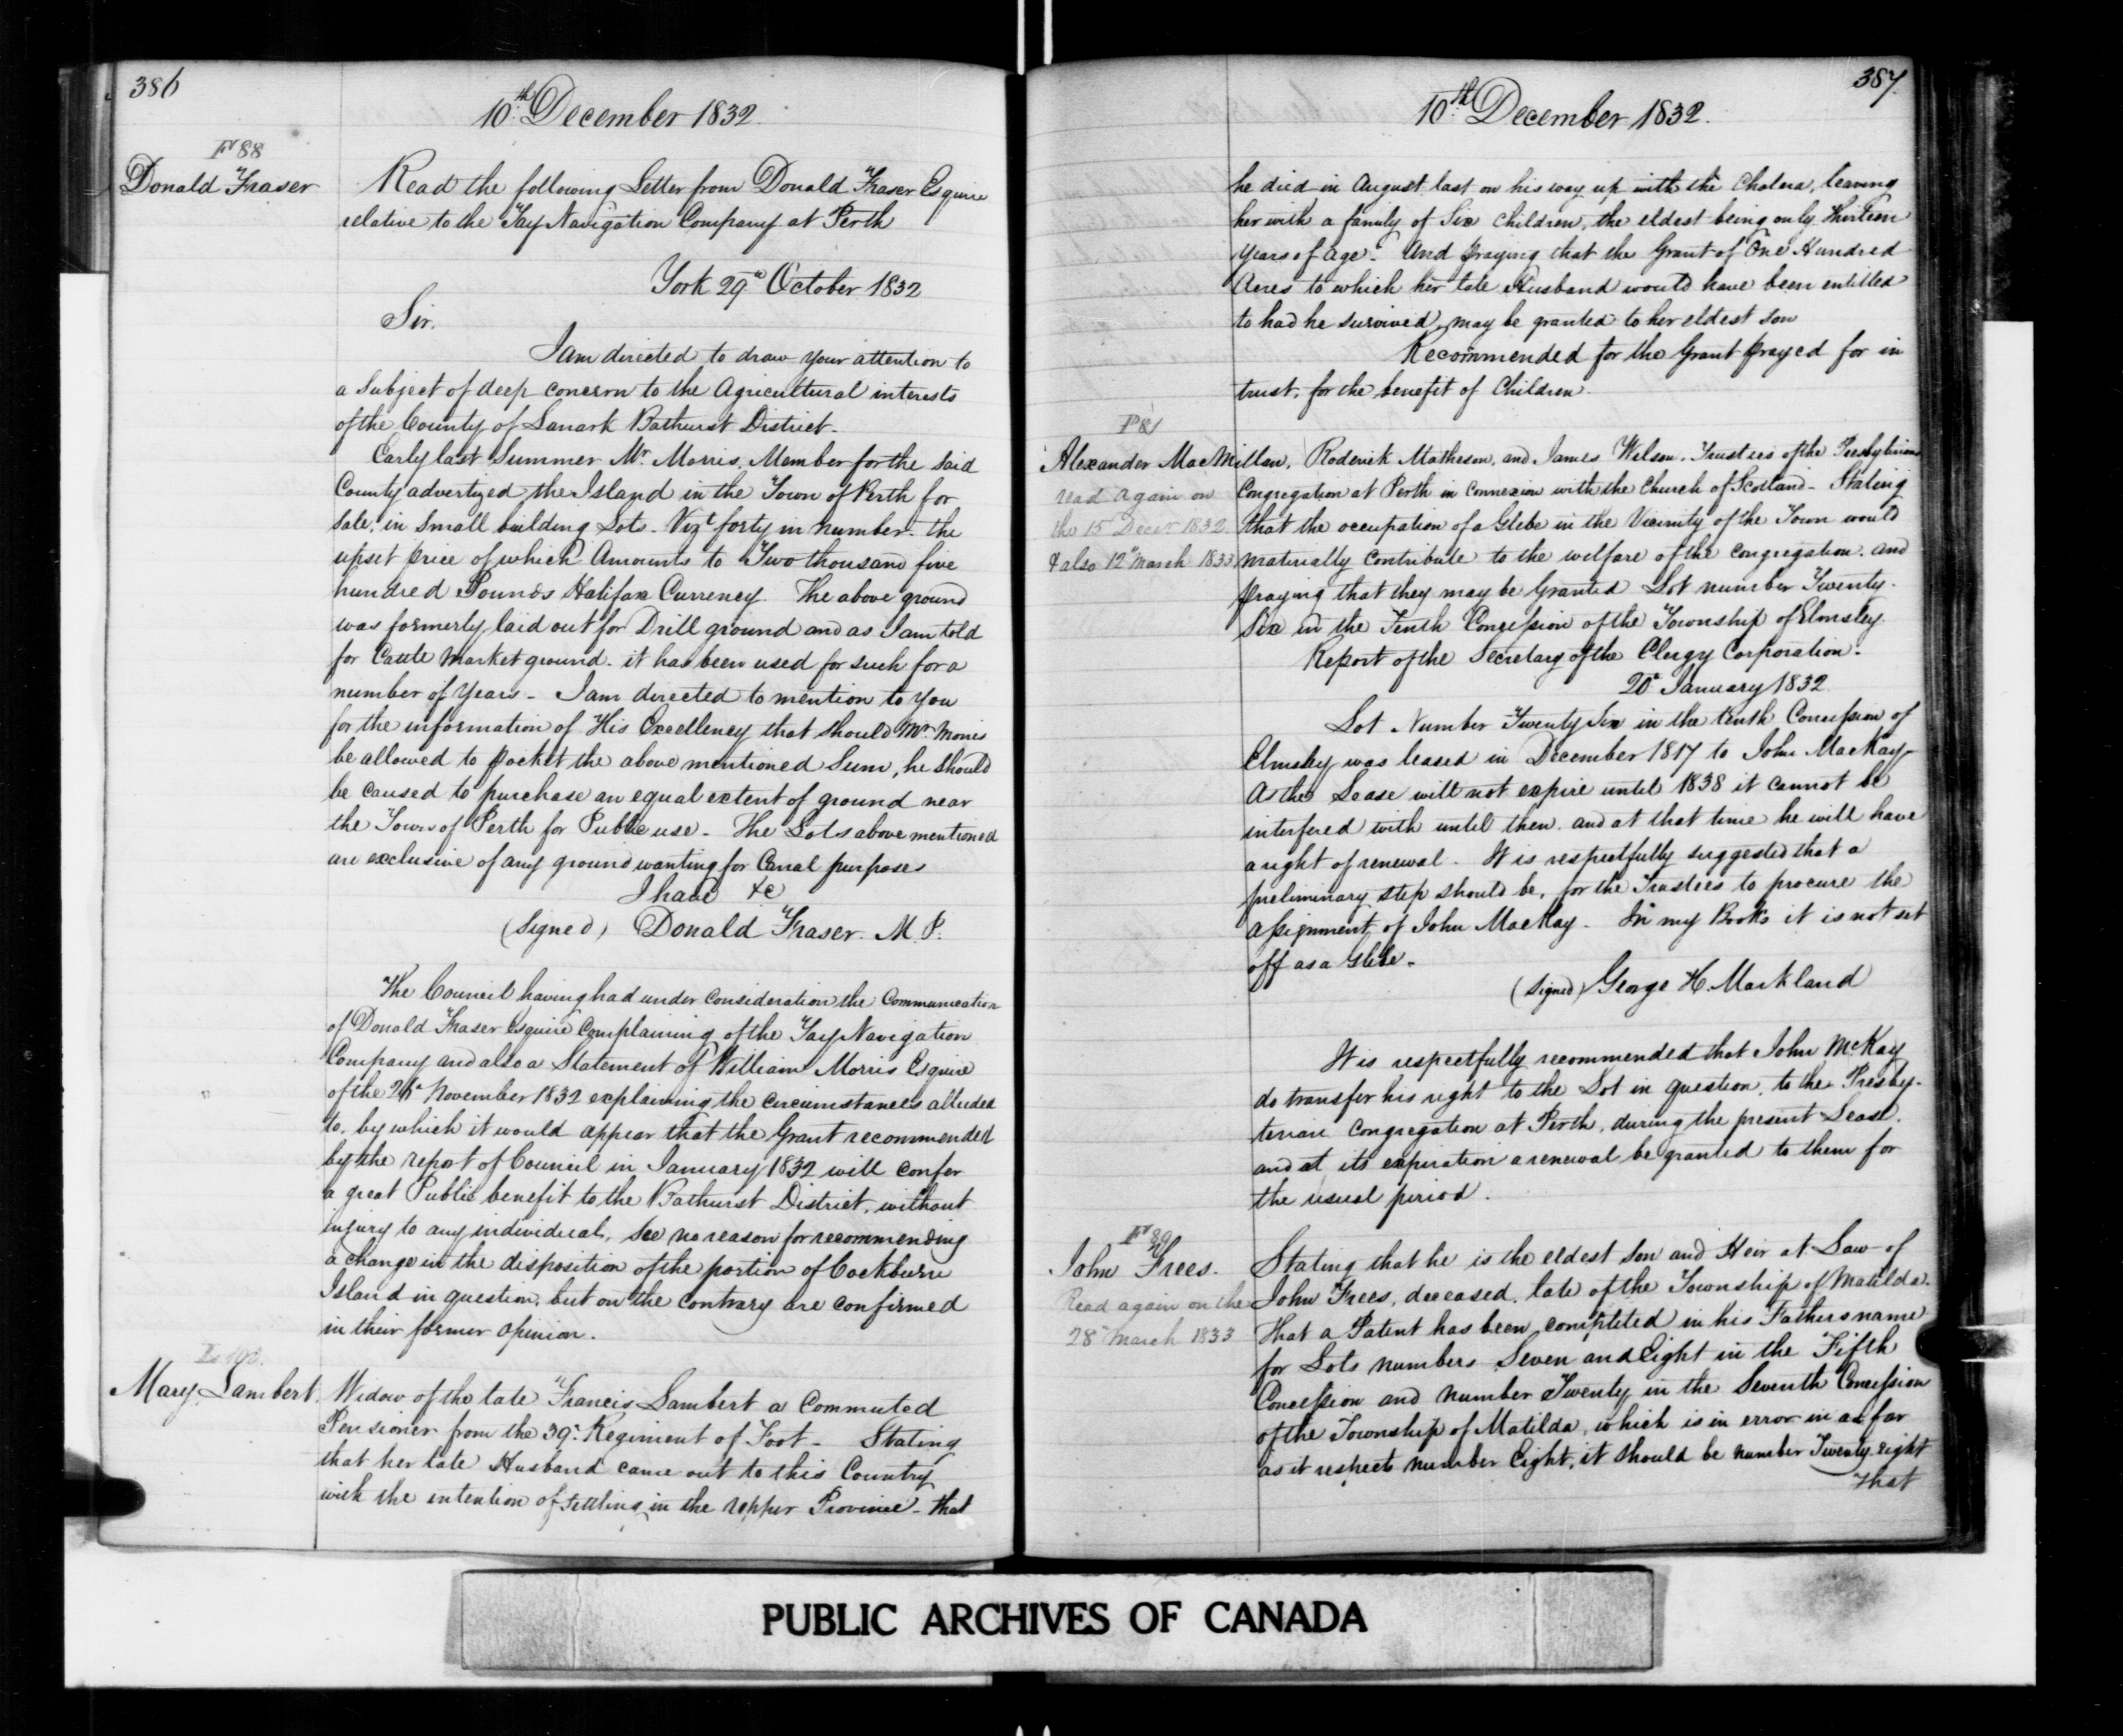 386
10th December 1832.
F 88
Donald Fraser
Read the following Letter from Donald Fraser Esquire
relative to the Tay Navigation Company at Perth
York 29th October 1832
Sir.
I am directed to draw your attention to
a Subject of deep concern to the Agricultural interests
of the County of Lanark Bathurst District.
Early last Summer Mr. Morris, Member for the said
County advertized the Island in the Town of Perth for
Sale, in small building Lots. Vizt forty in number. the
upset price of which Amounts to Two thousand five
hundred Pounds Halifax Currency. The above ground
was formerly laid out for Drill ground and as I am told
for Cattle Market ground. it has been used for such for a
number of Years - I am directed to mention to you
for the information of His Excellency that should Mr. Morris
be allowed to pocket the above mentioned Sum, he should
be caused to purchase an equal extent of ground near
the Town of Perth for Public use - The Lots above mentioned
are exclusive of any ground wanting for Canal purposes
I have &c
(Signed) Donald Fraser. M.P.
The Council having had under consideration the Communication
of Donald Fraser Esquire Complaining of the Tay Navigation
Company and also a Statement of William Morris Esquire
of the 26th November 1832 explaining the circumstances alluded
to, by which it would appear that the Grant recommended
by the report of Council in January 1832 will confer
a great Public benefit to the Bathurst District, without
injury to any individual, see no reason for recommending
a change in the disposition of the portion of Cockburn
Island in question, but on the contrary are confirmed
in their former opinion.
Mary Lambert.
Widow of the late Francis Lambert a Commuted
Pensioner from the 39th Regiment of Foot - Stating
that her late Husband came out to this Country
with the intention of settling in the upper Province - that
387.
10th December 1832.
he died in August last on his way up with the Cholera, leaving
her with a family of Six children, the eldest being only Thirteen
years of age. And praying that the Grant of One Hundred
Acres to which her late Husband would have been entitled
to had he survived, may be granted to her eldest son
Recommended for the Grant prayed for in
trust, for the benefit of Children.
P 81
Alexander MacMillan, Roderick Matheson, and James Wilson. Trustees of the Presbyterian
read again on
the 15 Decr 1832
& also 12th March 1833
Congregation at Perth in connexion with the Church of Scotland - Stating
that the occupation of a Glebe in the Vicinity of the Town would
materially contribute to the welfare of the congregation. and
praying that they may be Granted Lot number Twenty-
Six in the Tenth Concession of the Township of Elmsley.
Report of the Secretary of the Clergy Corporation.
20th January 1832.
Lot Number Twenty Six in the tenth Concession of
Elmsley was leased in December 1817 to John MacKay
As the Lease will not expire until 1838 it cannot be
interfered with until then. and at that time he will have
a right of renewal. It is respectfully suggested that a
preliminary step should be, for the Trustees to procure the
assignment of John MacKay. In my Books it is not set
off as a Glebe.
(Signed) George H. Markland
It is respectfully recommended that John McKay
do transfer his right to the Lot in question, to the Presby-
terian Congregation at Perth, during the present Lease.
and at its expiration a renewal be granted to them for
the usual period.
F 89
John Frees.
Read again on the
28th March 1833
Stating that he is the eldest Son and Heir at Law of
John Frees, deceased, late of the Township of Matilda.
That a Patent has been completed in his Fathers name
for Lots numbers Seven and Eight in the Fifth
Concession and number Twenty in the Seventh Concession
of the Township of Matilda, which is in error in as far
as it respects number Eight, it should be number Twenty eight
That
PUBLIC ARCHIVES OF CANADA